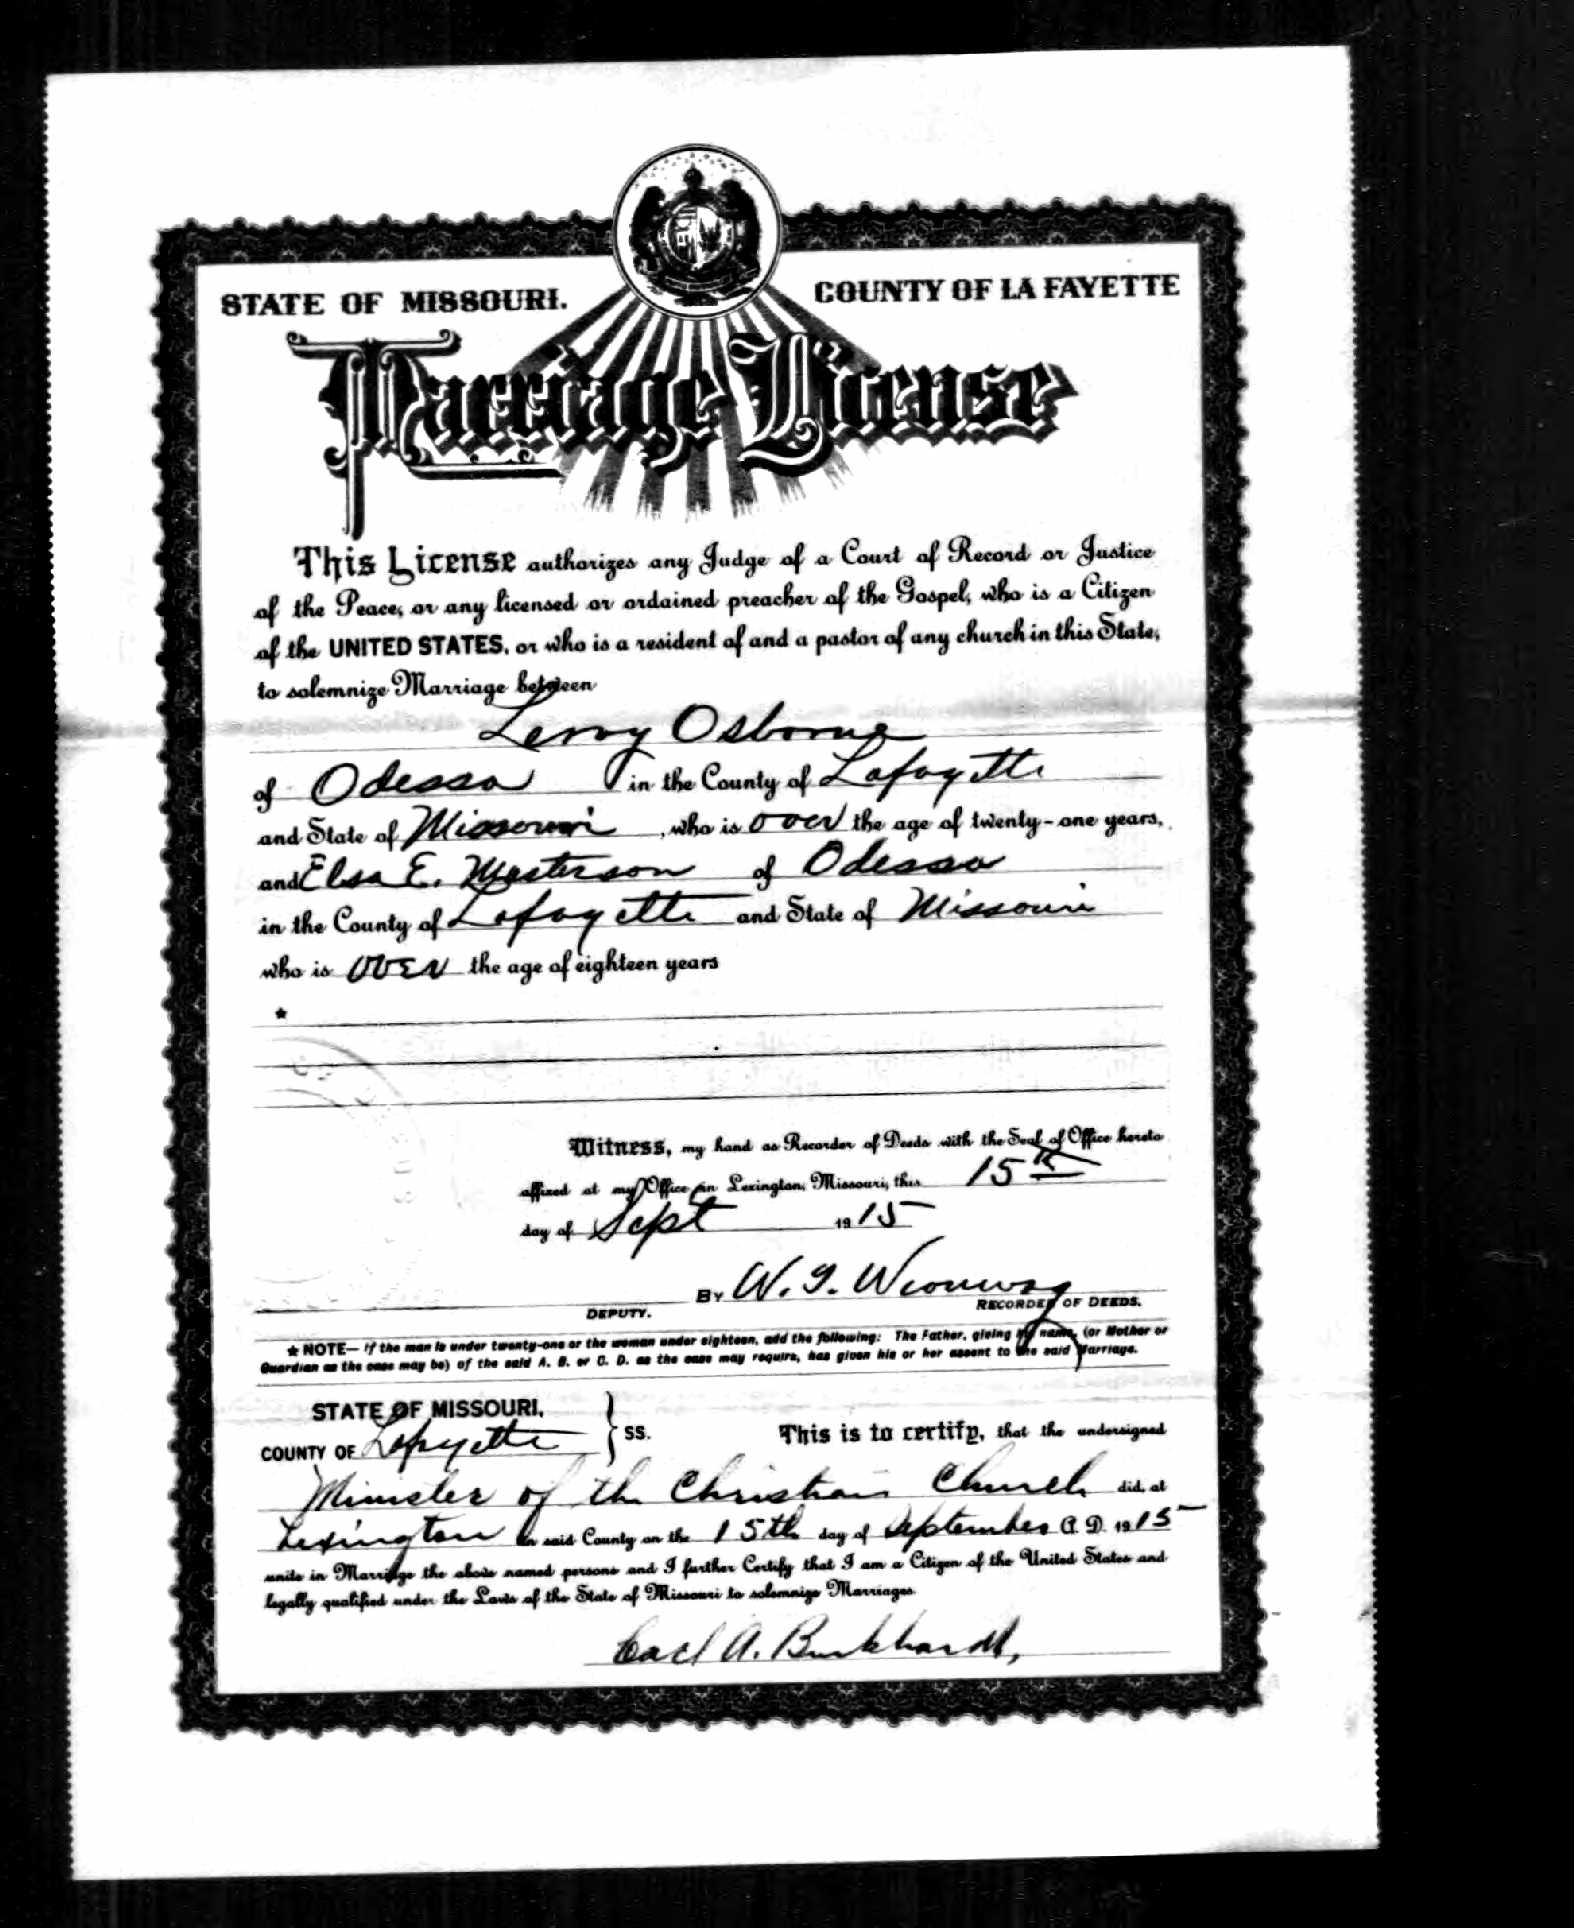 STATE OF MISSOURI. COUNTY OF LA FAYETTE
Marriage License
This License authorizes any Judge of a Court of Record or Justice
of the Peace, or any licensed or ordained preacher of the Gospel, who is a Citizen
of the UNITED STATES, or who is a resident of and a pastor of any church in this State,
to solemnize Marriage between
Leroy Osborne
of Odessa in the County of Lafayette
and State of Missouri, who is over the age of twenty-one years,
and Elsa E. Masterson of Odessa
in the County of Lafayette and State of Missouri
who is over the age of eighteen years
*
Witness, my hand as Recorder of Deeds with the Seal of Office hereto
affixed at my Office in Lexington, Missouri, this 15th
day of Sept 1915
By W. G.
DEPUTY. RECORDER OF DEEDS.
* NOTE— If the man is under twenty-one or the woman under eighteen, add the following: The Father, giving his name, (or Mother or
Guardian as the case may be) of the said A. B. or C. D. as the case may require, has given his or her assent to the said Marriage.
STATE OF MISSOURI,
COUNTY OF Lafayette } SS. This is to certify, that the undersigned
Minister of the Christian Church did, at
Lexington in said County on the 15th day of September A. D. 1915
unite in Marriage the above named persons and I further Certify that I am a Citizen of the United States and
legally qualified under the Laws of the State of Missouri to solemnize Marriages.
Carl A. Burkhardt,